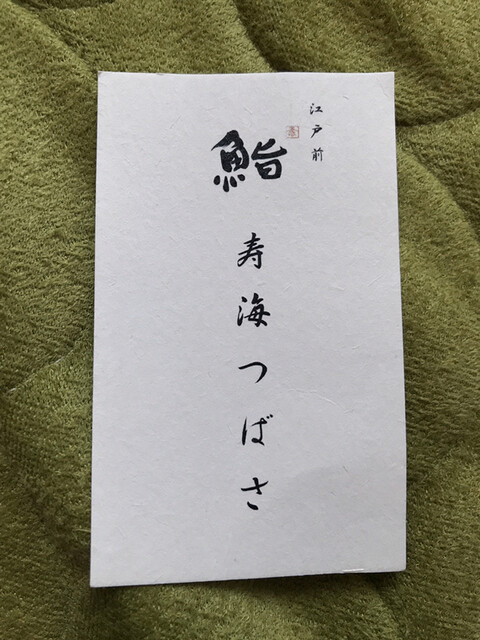 江戸前
鮨
寿海つばさ